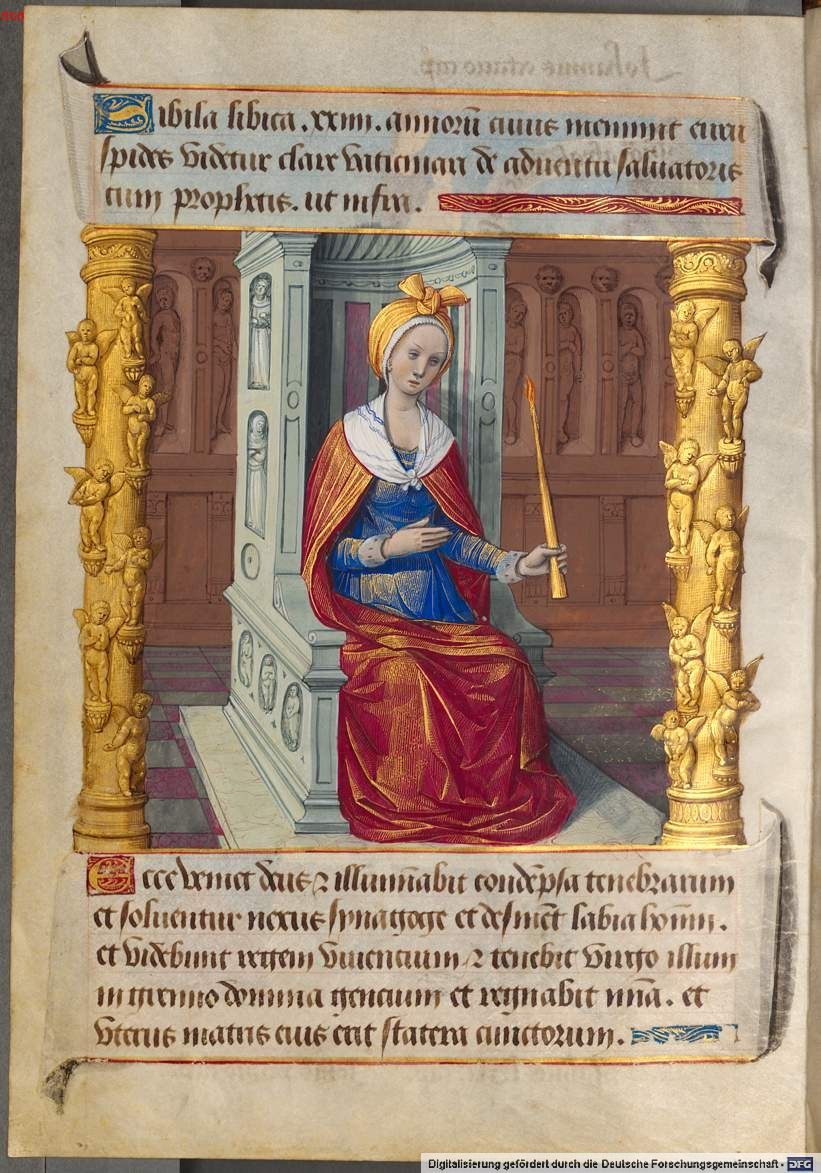 Sibila libica. xxiiii. annorū cuius meminit euri
spides videtur clare vaticinari de aduentu saluatoris
cum prophetis. ut infra.
Ecce veniet deus ⁊ illumīabit condēpsa tenebrarum
et soluentur nexus synagoge et desinēt labia hoīm.
et videbunt regem viuencium ⁊ tenebit virgo illum
in gremio domina gencium et regnabit mīa. et
vterus matris eius erit statera cunctorum.
Digitalisierung gefördert durch die Deutsche Forschungsgemeinschaft - DFG